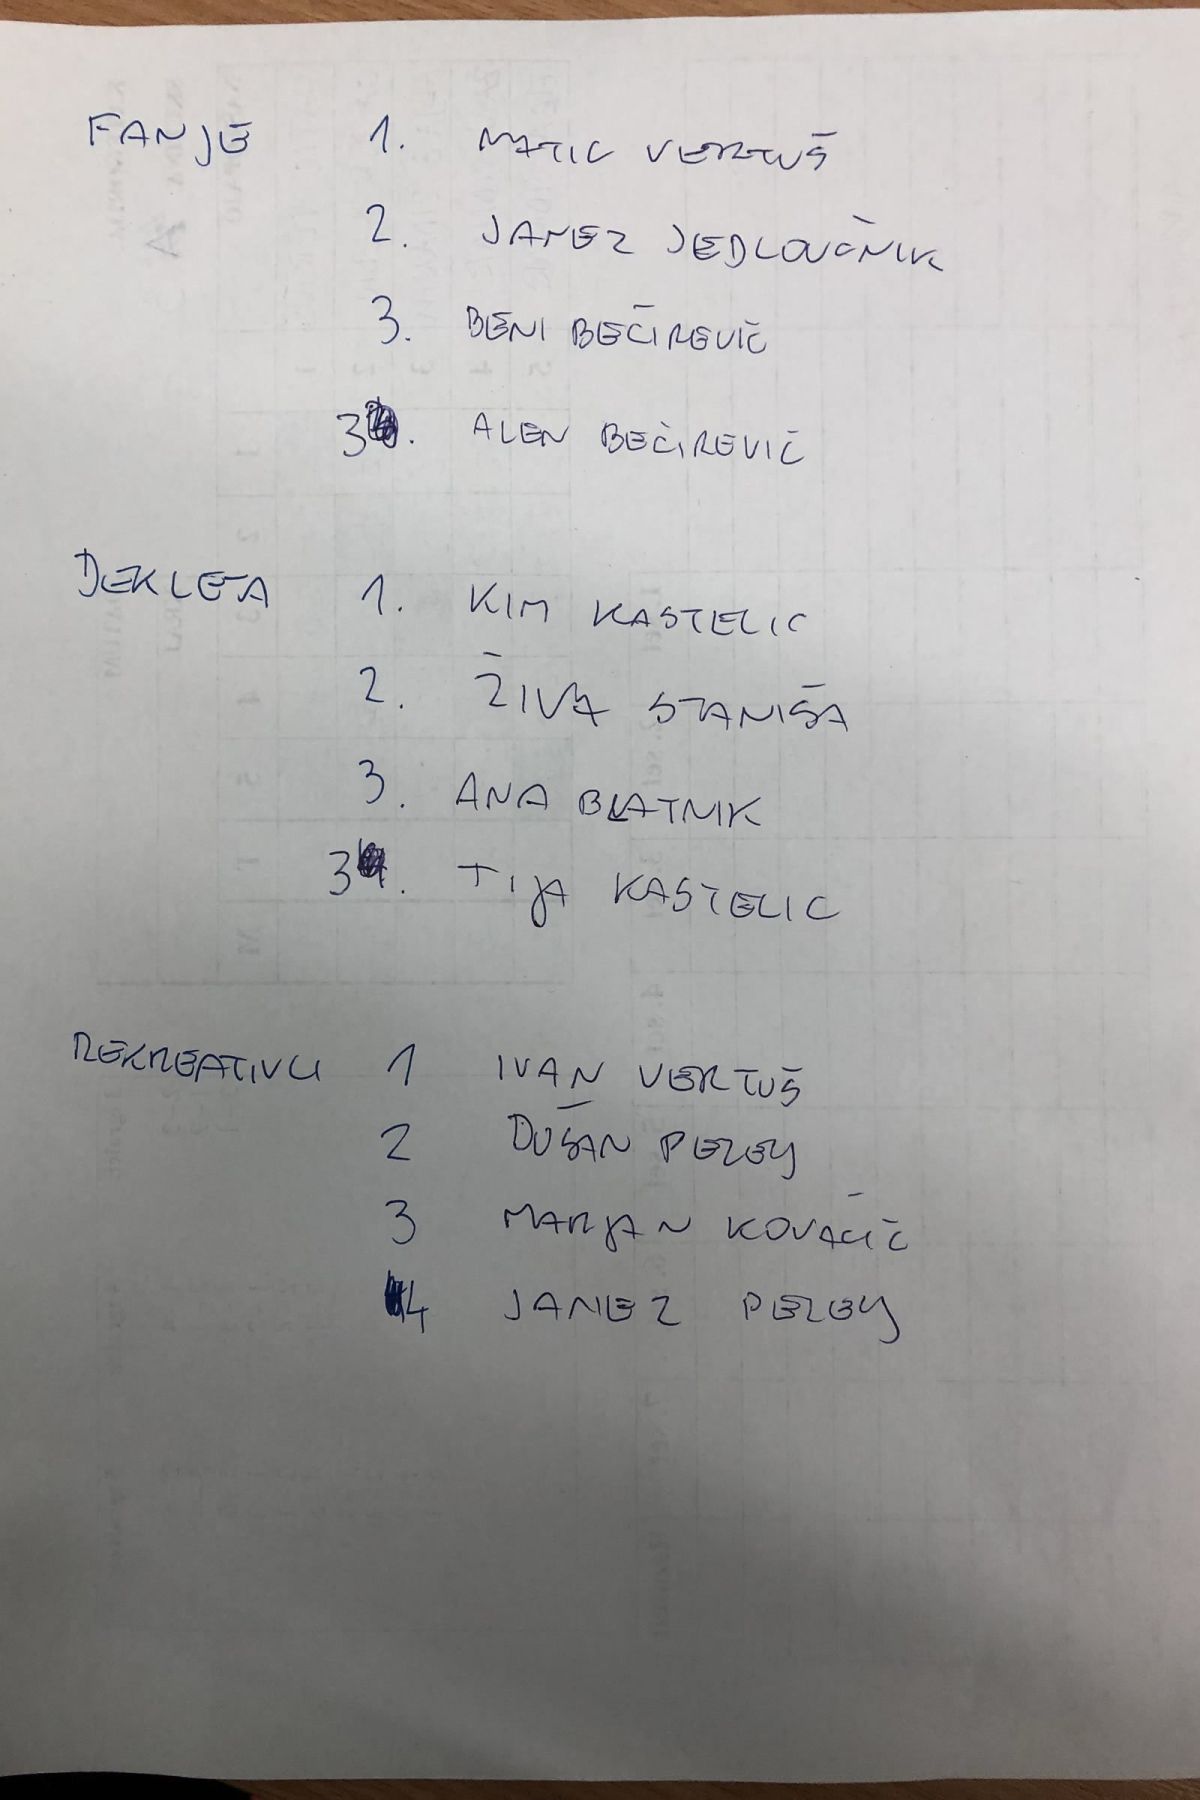 FANJE 1. MATIC VERTUŠ
2. JANEZ JEDLOVČNIK
3. BENI BEČIREVIČ
3. ALEN BEČIREVIČ
DEKLETA 1. KIM KASTELIC
2. ŽIVA STANIŠA
3. ANA BLATNIK
3. TIJA KASTELIC
REKREATIVCI 1 IVAN VERTUŠ
2 DUŠAN PEZEY
3 MARJAN KOVAČIČ
4 JANEZ PEZEY